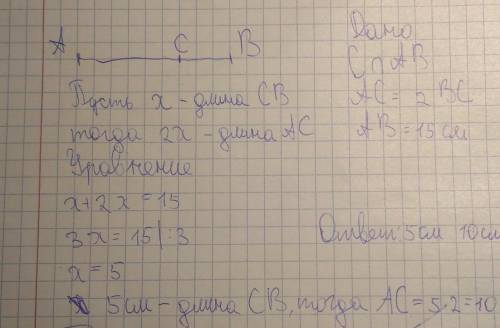 A C B
Дано
C ∩ AB
AC = 2 BC
AB = 15 см
Пусть x - длина CB
тогда 2x - длина AC
Уравнение
x + 2x = 15
3x = 15 | :3
x = 5
5см - длина CB, тогда AC = 5·2 = 10
Ответ: 5см 10см